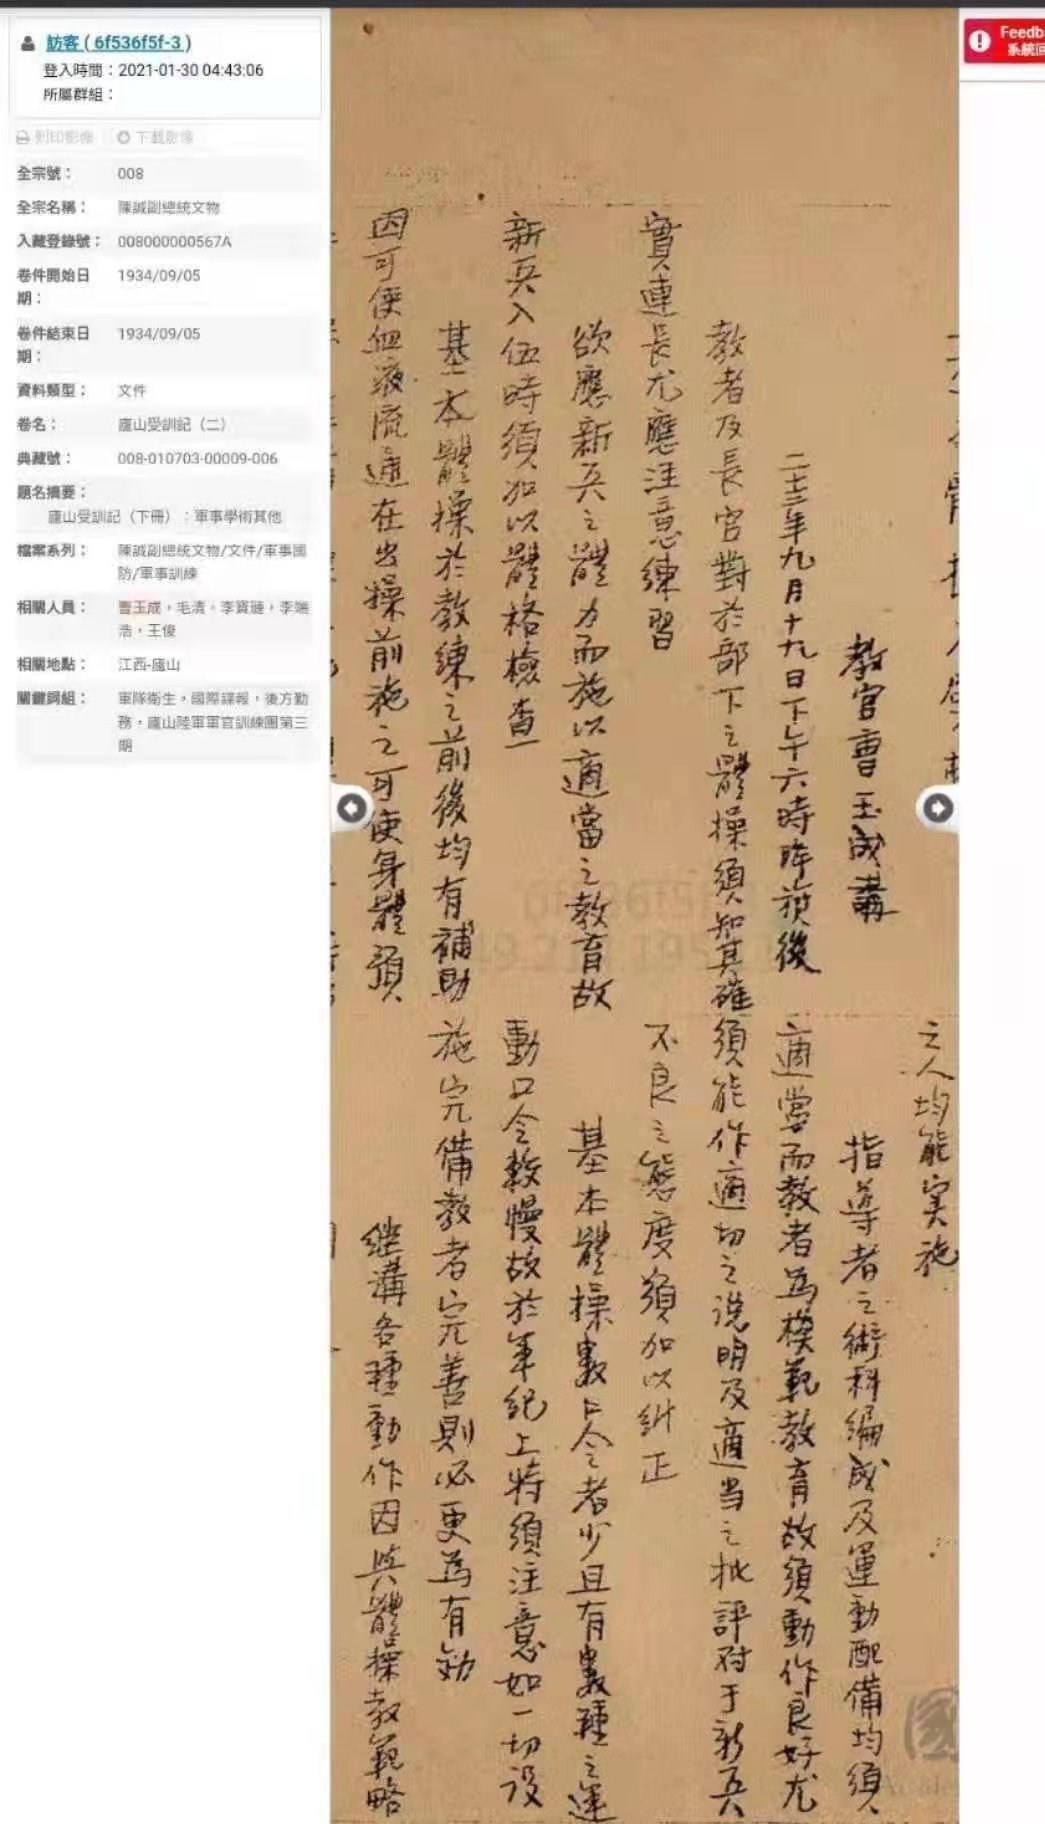 訪客 ( 6f536f5f-3 )
登入時間：2021-01-30 04:43:06
所屬群組：
列印影像 下載影像
全宗號： 008
全宗名稱： 陳誠副總統文物
入藏登錄號： 008000000567A
卷件開始日 1934/09/05
期：
卷件結束日 1934/09/05
期：
資料類型： 文件
卷名： 廬山受訓記（二）
典藏號： 008-010703-00009-006
題名摘要：
廬山受訓記（下冊）：軍事學術其他
檔案系列： 陳誠副總統文物/文件/軍事國
防/軍事訓練
相關人員： 曹玉成，毛清，李寶璉，李端
浩，王俊
相關地點： 江西-廬山
關鍵詞組： 軍隊衛生，國際諜報，後方勤
務，廬山陸軍軍官訓練團第三
期
Feedb
系統回
教官曹玉成講
二十三年九月十九日下午六時降旗後
教者及長官對於部下之體操須知其確
實連長尤應注意練習
欲應新兵之體力而施以適當之教育故
新兵入伍時須加以體格檢查
基本體操於教練之前後均有補助
因可使血液流通在出操前施之可使身體預
之人均能実施
指導者之術科編成及運動配備均須
適當而教者為模範教育故須動作良好尤
須能作適切之說明及適当之批評對于新兵
不良之態度須加以糾正
基本體操數口令者少且有數種之運
動口令較慢故於軍紀上特須注意如一切設
施完備教者完善則必更為有効
継講各種動作因與體操教範略
國